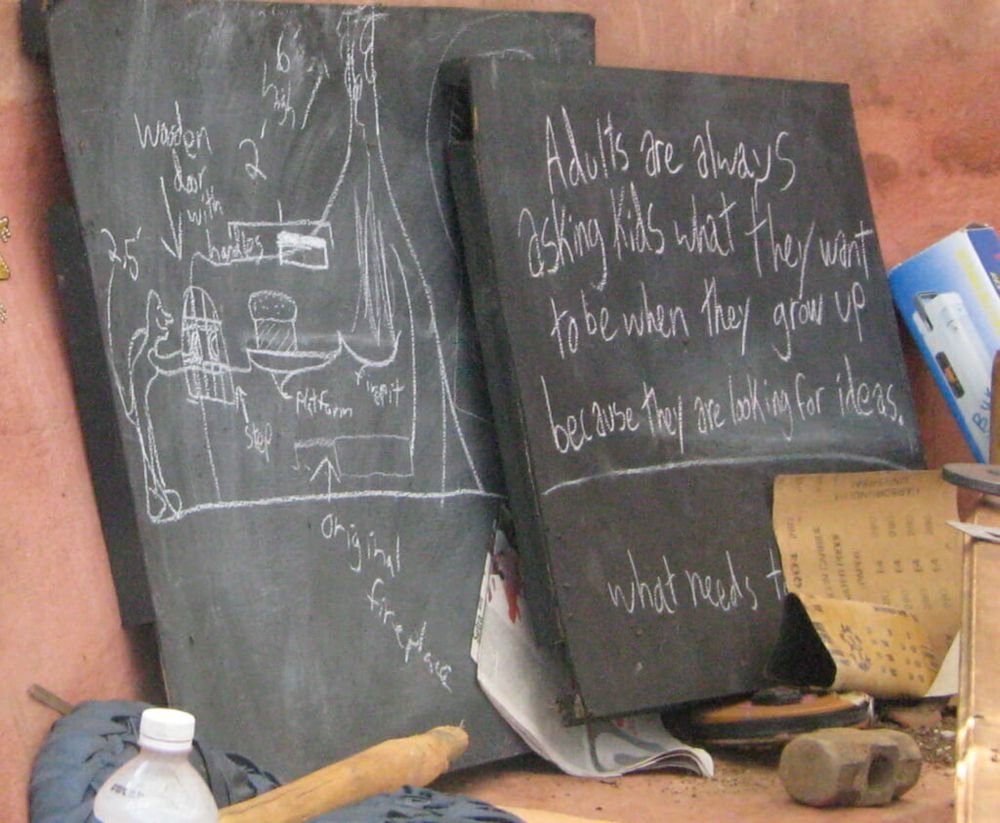 6'
high
wooden
door
with
handles
2'
2.5'
platform
firepit
step
original
fireplace
Adults are always
asking kids what they want
to be when they grow up
because they are looking for ideas.
what needs